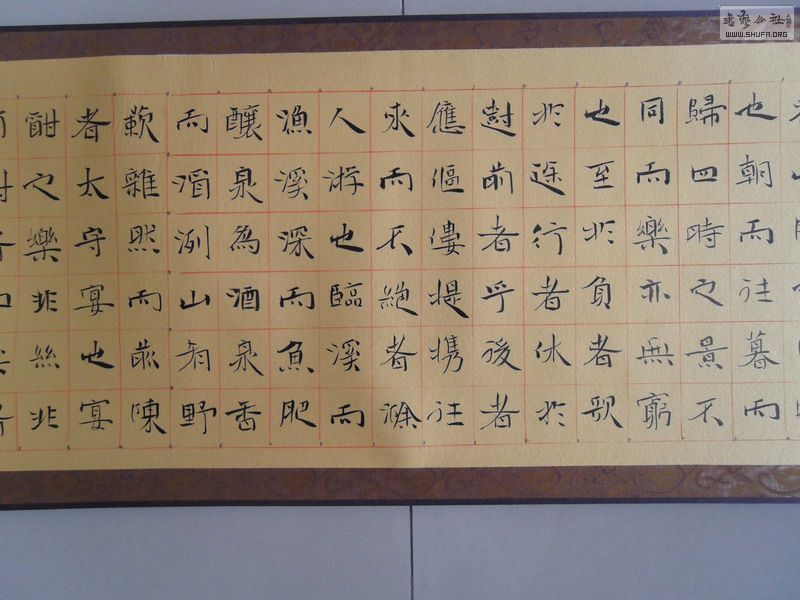 也朝而往暮而
歸四時之景不
同而樂亦無窮
也至於負者歌
於途行者休於
樹前者乎後者
應傴僂提携往
來而不絕者滁
人游也臨溪而
漁溪深而魚肥
釀泉為酒泉香
而洌山肴野
蔌雜然而前陳
者太守宴也宴
酣之樂非絲非
WWW.SHUFA.ORG